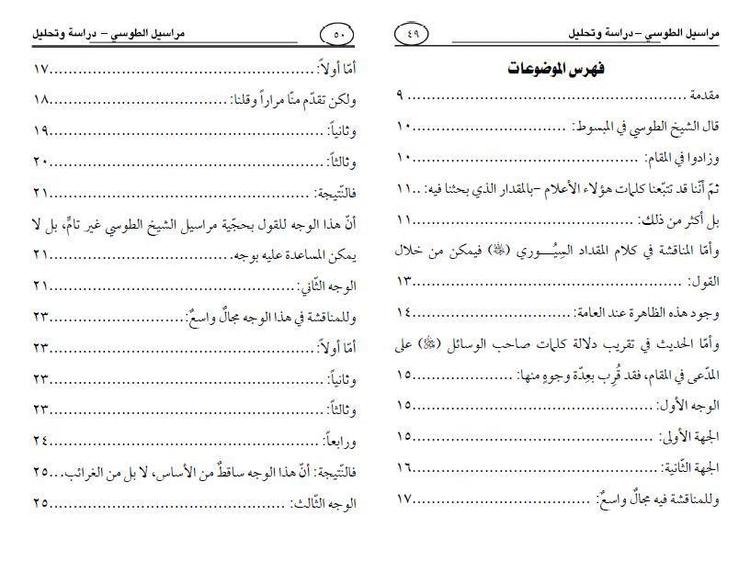 مراسيل الطوسي – دراسة وتحليل
٤٩
فهرس الموضوعات
مقدمة .................................................... ٩
قال الشيخ الطوسي في المبسوط: ............................. ١٠
وزادوا في المقام: ......................................... ١٠
ثمّ أنّنا قد تتبّعنا كلمات هؤلاء الأعلام –بالمقدار الذي بحثنا فيه: ..١١
بل أكثر من ذلك: .........................................١١
وأمّا المناقشة في كلام المقداد السِيُـــوري () فيمكن من خلال
القول: ..................................................١٣
وجود هذه الظاهرة عند العامة: ..............................١٤
وأمّا الحديث في تقريب دلالة كلمات صاحب الوسائل () على
المدّعى في المقام، فقد قُرِب بعِدّة وجوهٍ منها: ...................١٥
الوجه الأول: .............................................١٥
الجهة الأولى: .............................................١٥
الجهة الثانية: .............................................١٦
وللمناقشة فيه مجالٌ واسعٌ: .................................١٧
مراسيل الطوسي – دراسة وتحليل
٥٠
أمّا أولاً: .................................................١٧
ولكن تقدّم منّا مراراً وقلنا: .................................١٨
وثانياً: ...................................................١٩
وثالثاً: ...................................................٢٠
فالنّتيجة: .................................................٢١
أنّ هذا الوجه للقول بحجّية مراسيل الشيخ الطوسي غير تامٍّ، بل لا
يمكن المساعدة عليه بوجه. .................................٢١
الوجه الثّاني: ..............................................٢١
وللمناقشة في هذا الوجه مجالٌ واسعٌ: .........................٢٣
أمّا أولاً: .................................................٢٣
وثانياً: ...................................................٢٣
وثالثاً: ...................................................٢٣
ورابعاً: ..................................................٢٤
فالنّتيجة: أنّ هذا الوجه ساقطٌ من الأساس، لا بل من الغرائب. ...٢٥
الوجه الثّالث: .............................................٢٥